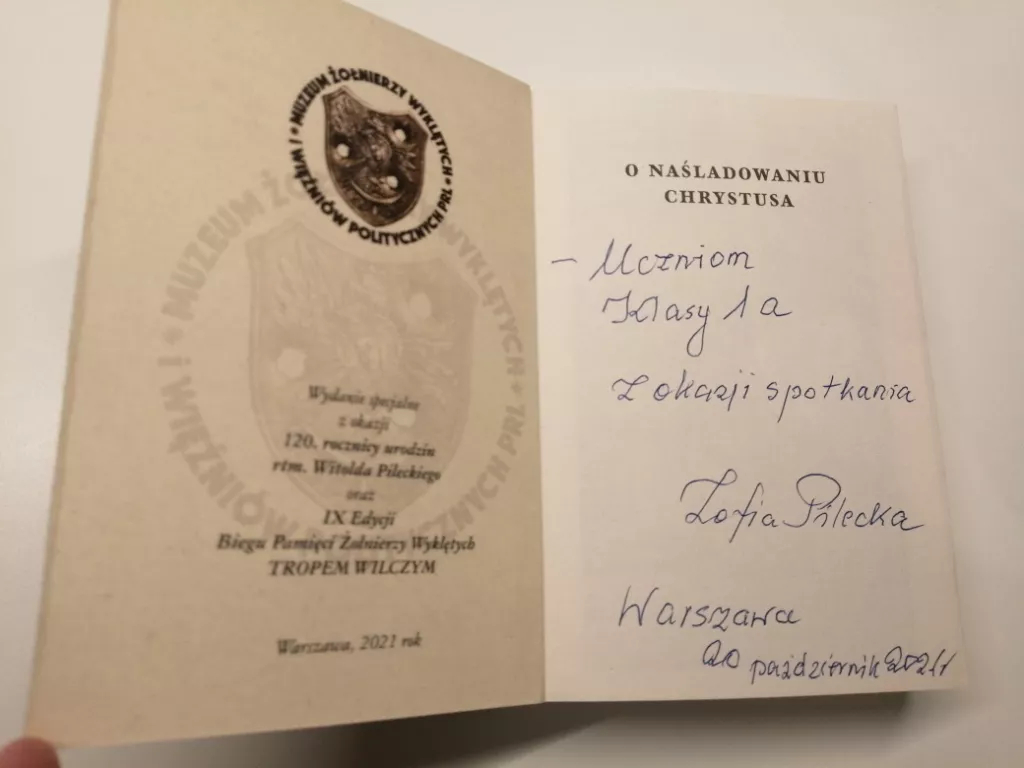 * MUZEUM ŻOŁNIERZY WYKLĘTYCH * I WIĘŹNIÓW POLITYCZNYCH PRL
Wydanie specjalne
z okazji
120. rocznicy urodzin
rtm. Witolda Pileckiego
oraz
IX Edycji
Biegu Pamięci Żołnierzy Wyklętych
TROPEM WILCZYM
Warszawa, 2021 rok
O NAŚLADOWANIU
CHRYSTUSA
– Uczniom
Klasy 1a
Z okazji spotkania
Zofia Pilecka
Warszawa
20 październik 2021